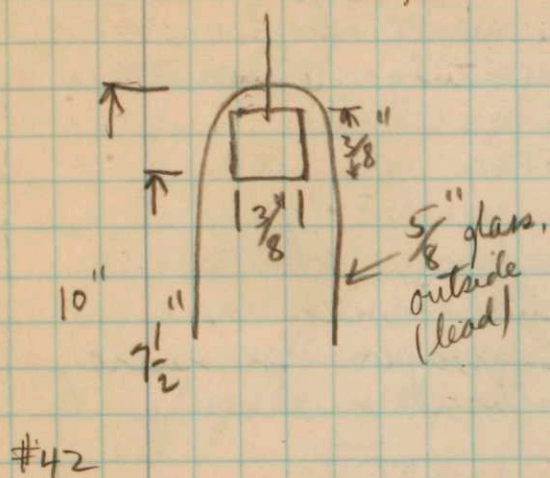 3/8"
3/8"
5/8" glass.
outside
(lead)
10"
7 1/2"
#42